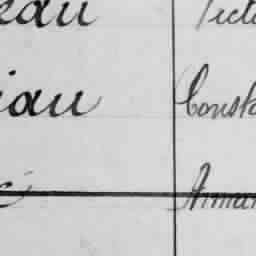 eau Victo
iau Consta
é Arman